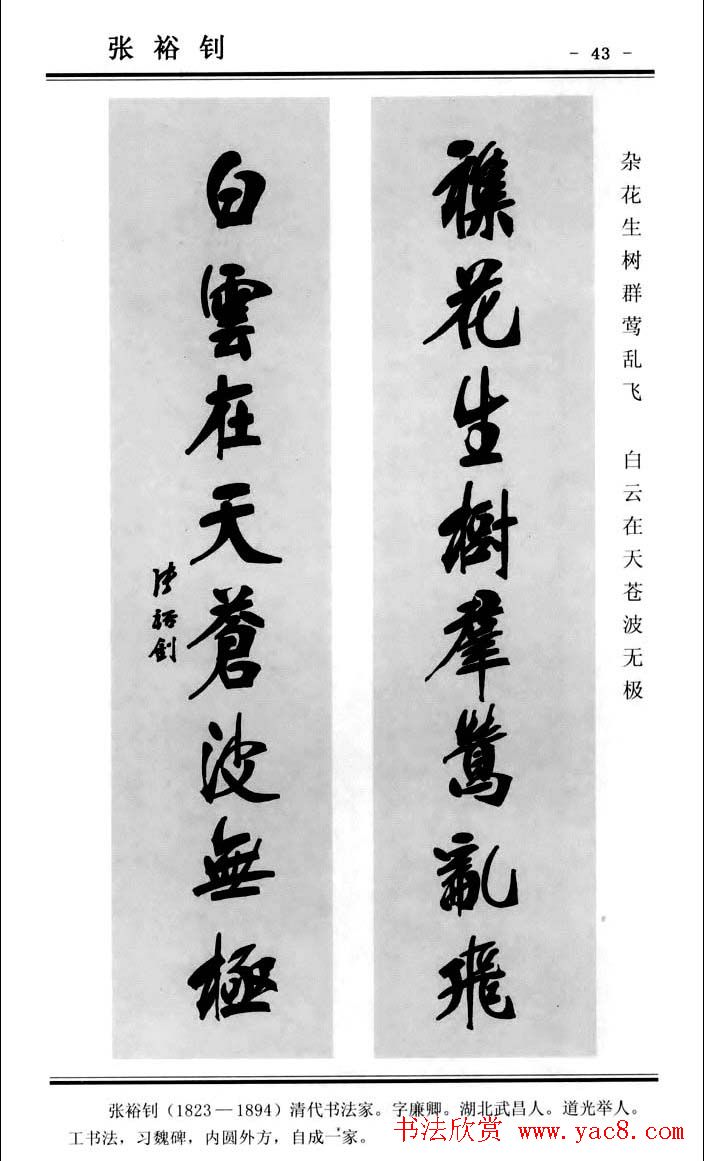 张裕钊
- 43 -
杂花生树群莺乱飞 白云在天苍波无极
襍花生樹羣鶯亂飛
白雲在天蒼波無極
張裕釗
张裕钊（1823—1894）清代书法家。字廉卿。湖北武昌人。道光举人。
工书法，习魏碑，内圆外方，自成一家。
书法欣赏 www.yac8.com